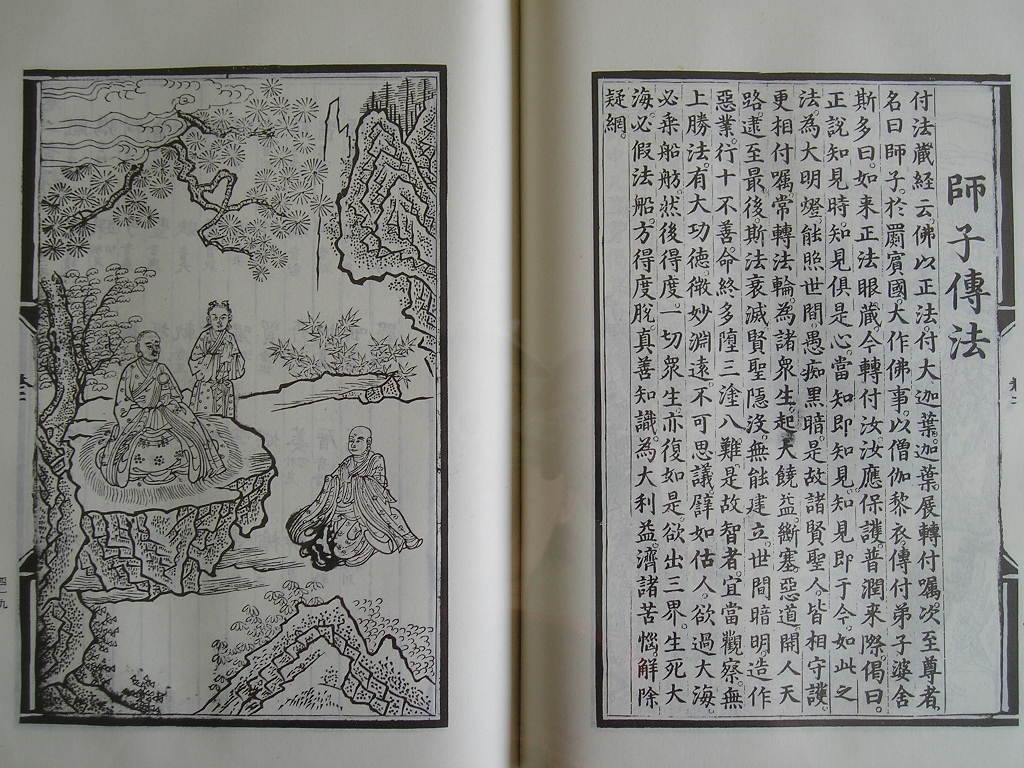 師子傳法
付法藏經云。佛以正法。付大迦葉。迦葉展轉付囑。次至尊者。
名曰師子。於罽賓國。大作佛事。以僧伽黎衣。傳付弟子婆舍
斯多曰。如來正法眼藏。今轉付汝。汝應保護。普潤來際。偈曰。
正說知見時。知見俱是心。當知即知見。知見即于今。如此之
法。為大明燈。能照世間。愚痴黑暗。是故諸賢聖人。皆相守護。
更相付囑。常轉法輪。為諸眾生。起大饒益。斷塞惡道。開人天
路。逮至最後。斯法衰滅。賢聖隱沒。無能建立。世間暗明。造作
惡業。行十不善。命終多墮三塗八難。是故智者。宜當觀察。無
上勝法。有大功德。微妙淵遠。不可思議。譬如估人。欲過大海。
必乘船舫。然後得度。一切眾生。亦復如是。欲出三界。生死大
海。必假法船。方得度脫。真善知識。為大利益。濟諸苦惱。解除
疑網。